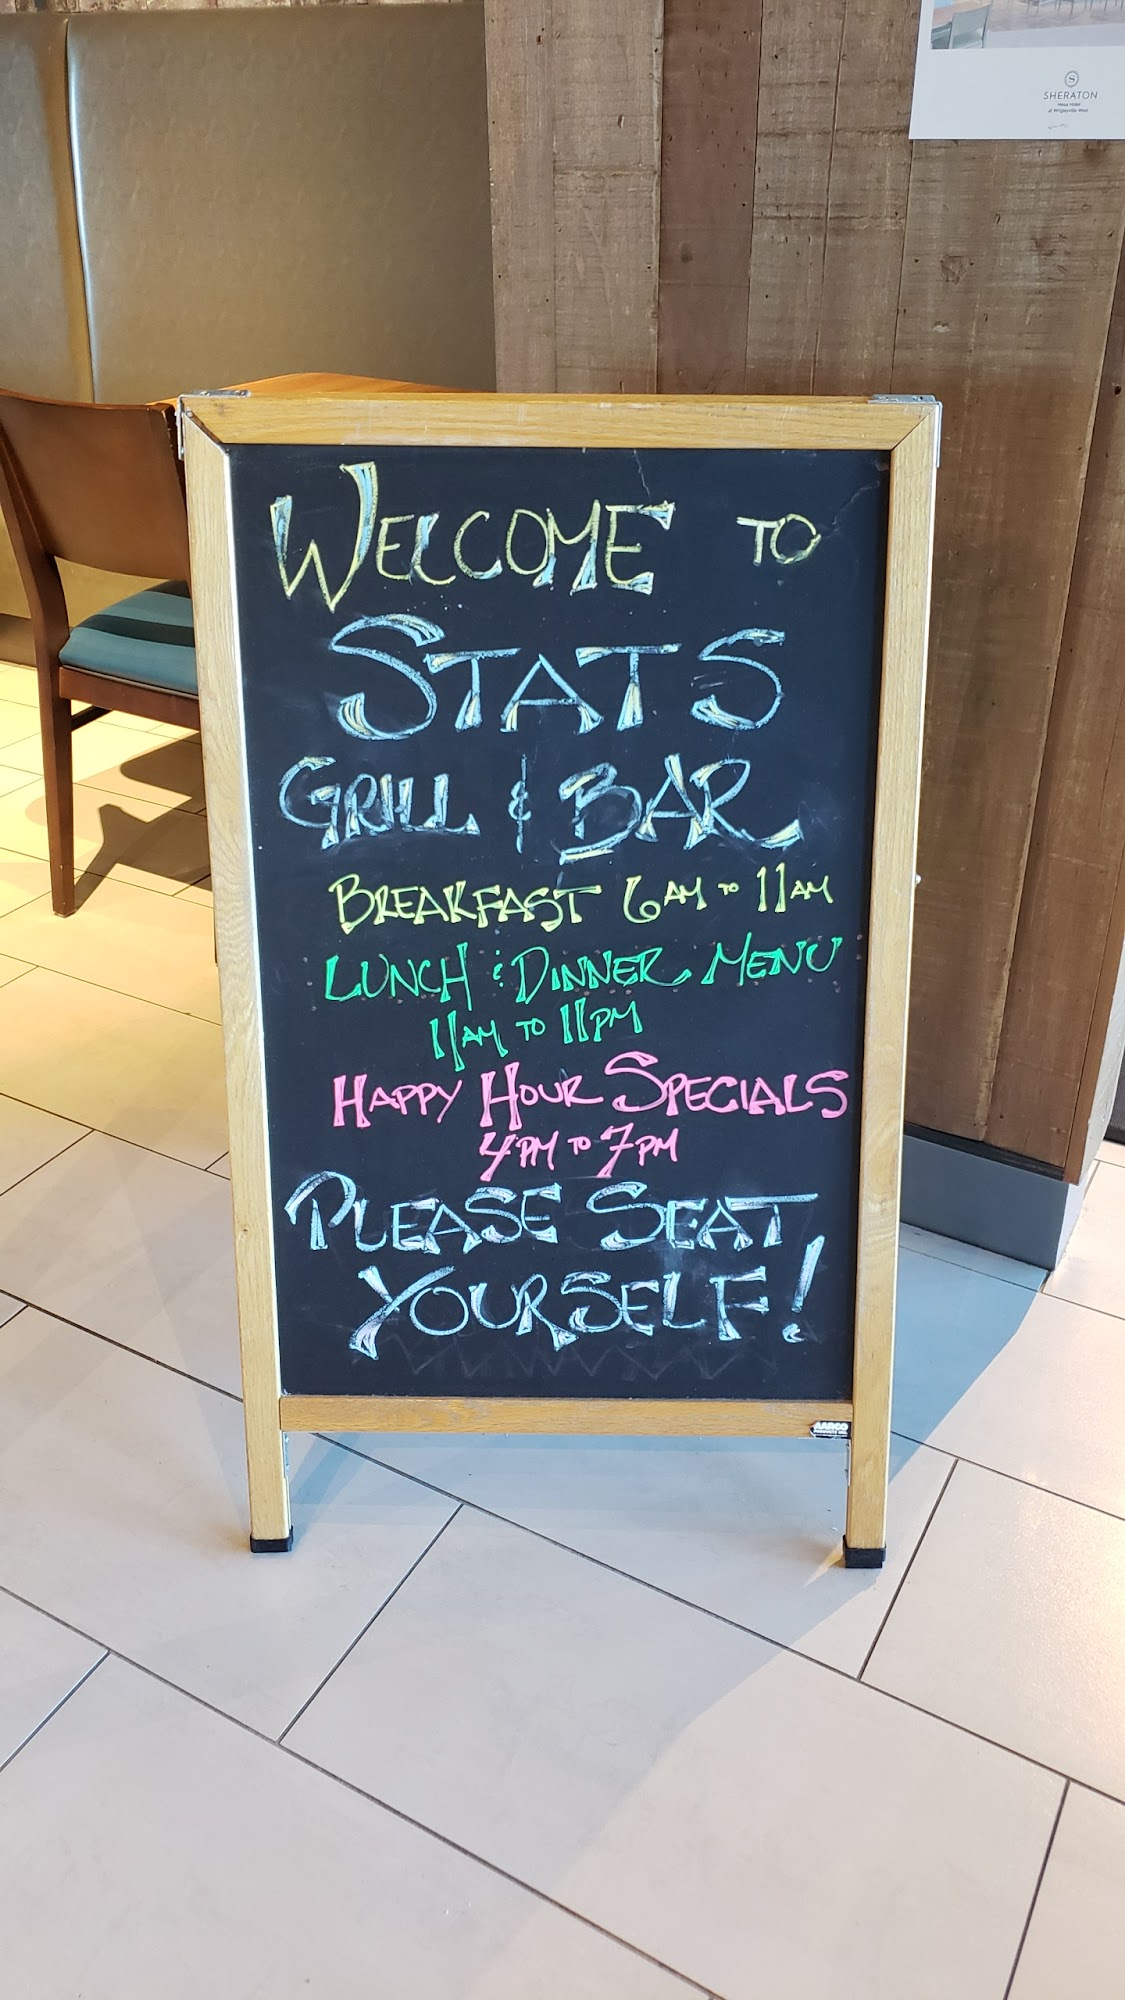 SHERATON
Mesa Hotel
at Wrigleyville West
WELCOME TO
STATS
GRILL & BAR
BREAKFAST 6AM TO 11AM
LUNCH & DINNER MENU
11AM TO 11PM
HAPPY HOUR SPECIALS
4PM TO 7PM
PLEASE SEAT
YOURSELF!
AARCO